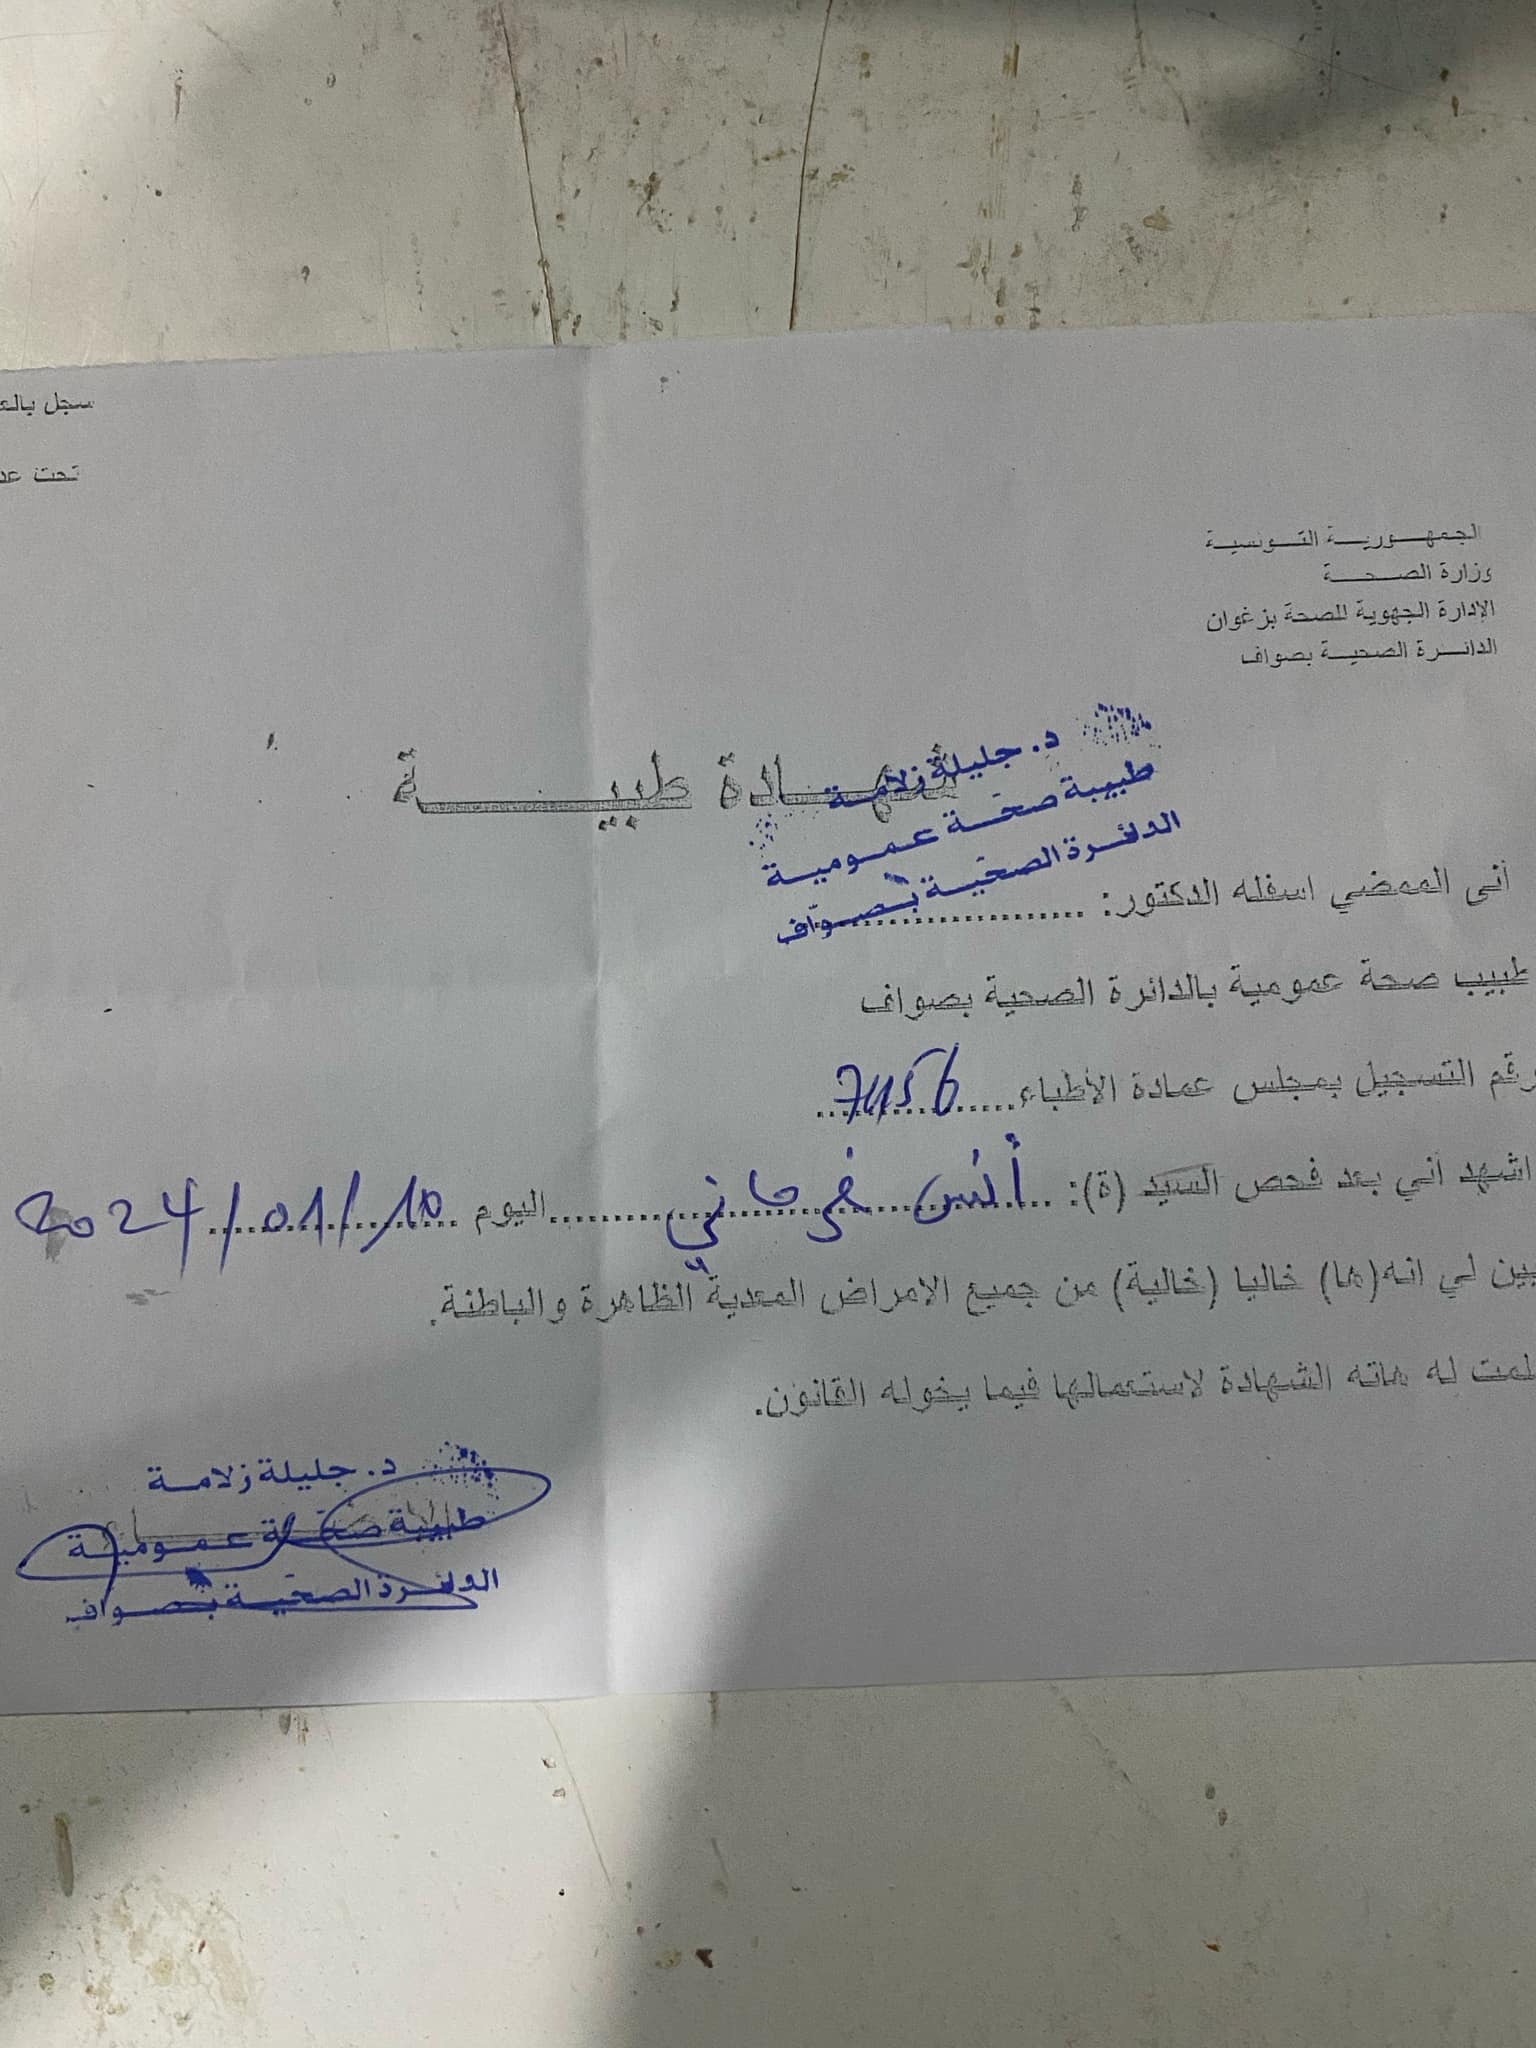 سجل بالع
تحت عد
الجمهورية التونسية
وزارة الصحة
الإدارة الجهوية للصحة بزغوان
الدائرة الصحية بصواف
شهادة طبية
د. جليلة زلامة
طبيبة صحة عمومية
الدائرة الصحية بصواف
أني الممضي اسفله الدكتور:
طبيب صحة عمومية بالدائرة الصحية بصواف
رقم التسجيل بمجلس عمادة الأطباء 7456
اشهد أني بعد فحص السيد (ة): أنس اليوم 2024/01/10
بين لي انه(ها) خاليا (خالية) من جميع الامراض المعدية الظاهرة والباطنة.
لمت له هاته الشهادة لاستعمالها فيما يخوله القانون.
د. جليلة زلامة
طبيبة صحة عمومية
الدائرة الصحية بصواف